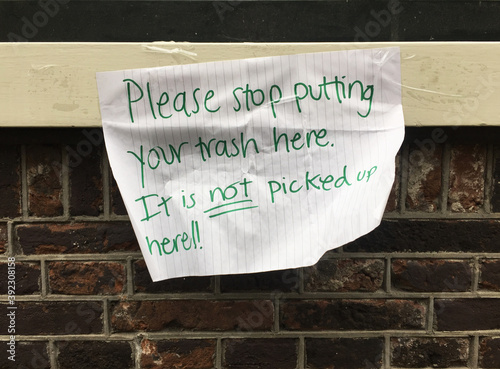 Please stop putting
your trash here.
It is not picked up
here!!
#392308158
Adobe Stock